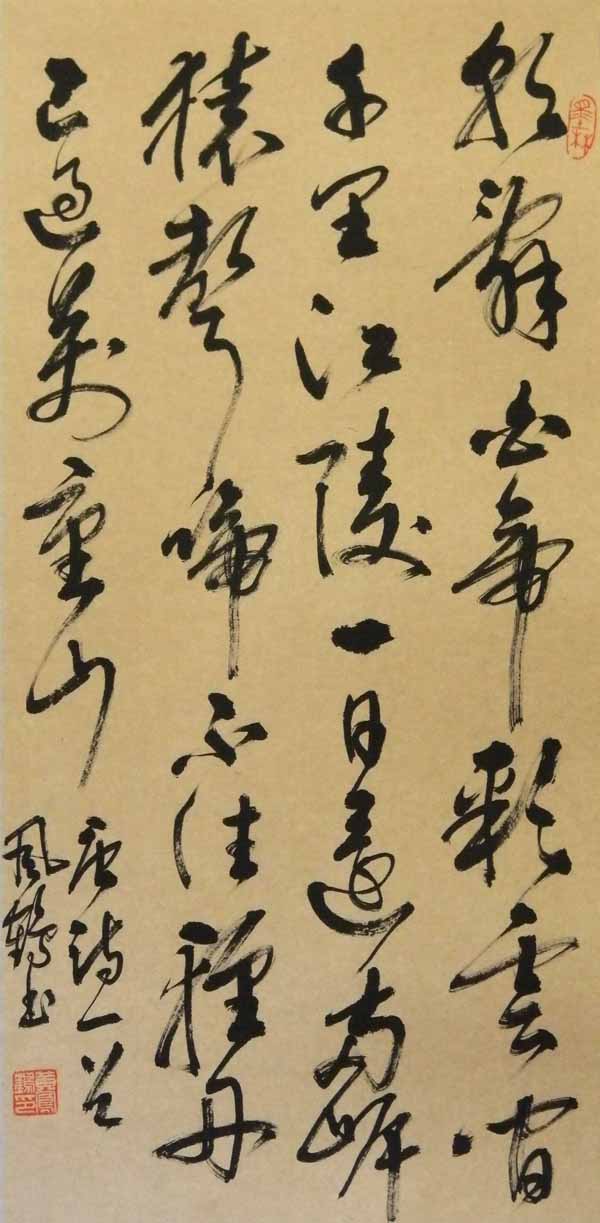 朝辭白帝彩雲間
千里江陵一日還兩岸
猿聲啼不住輕舟
已過萬重山
唐詩一首
鶴書